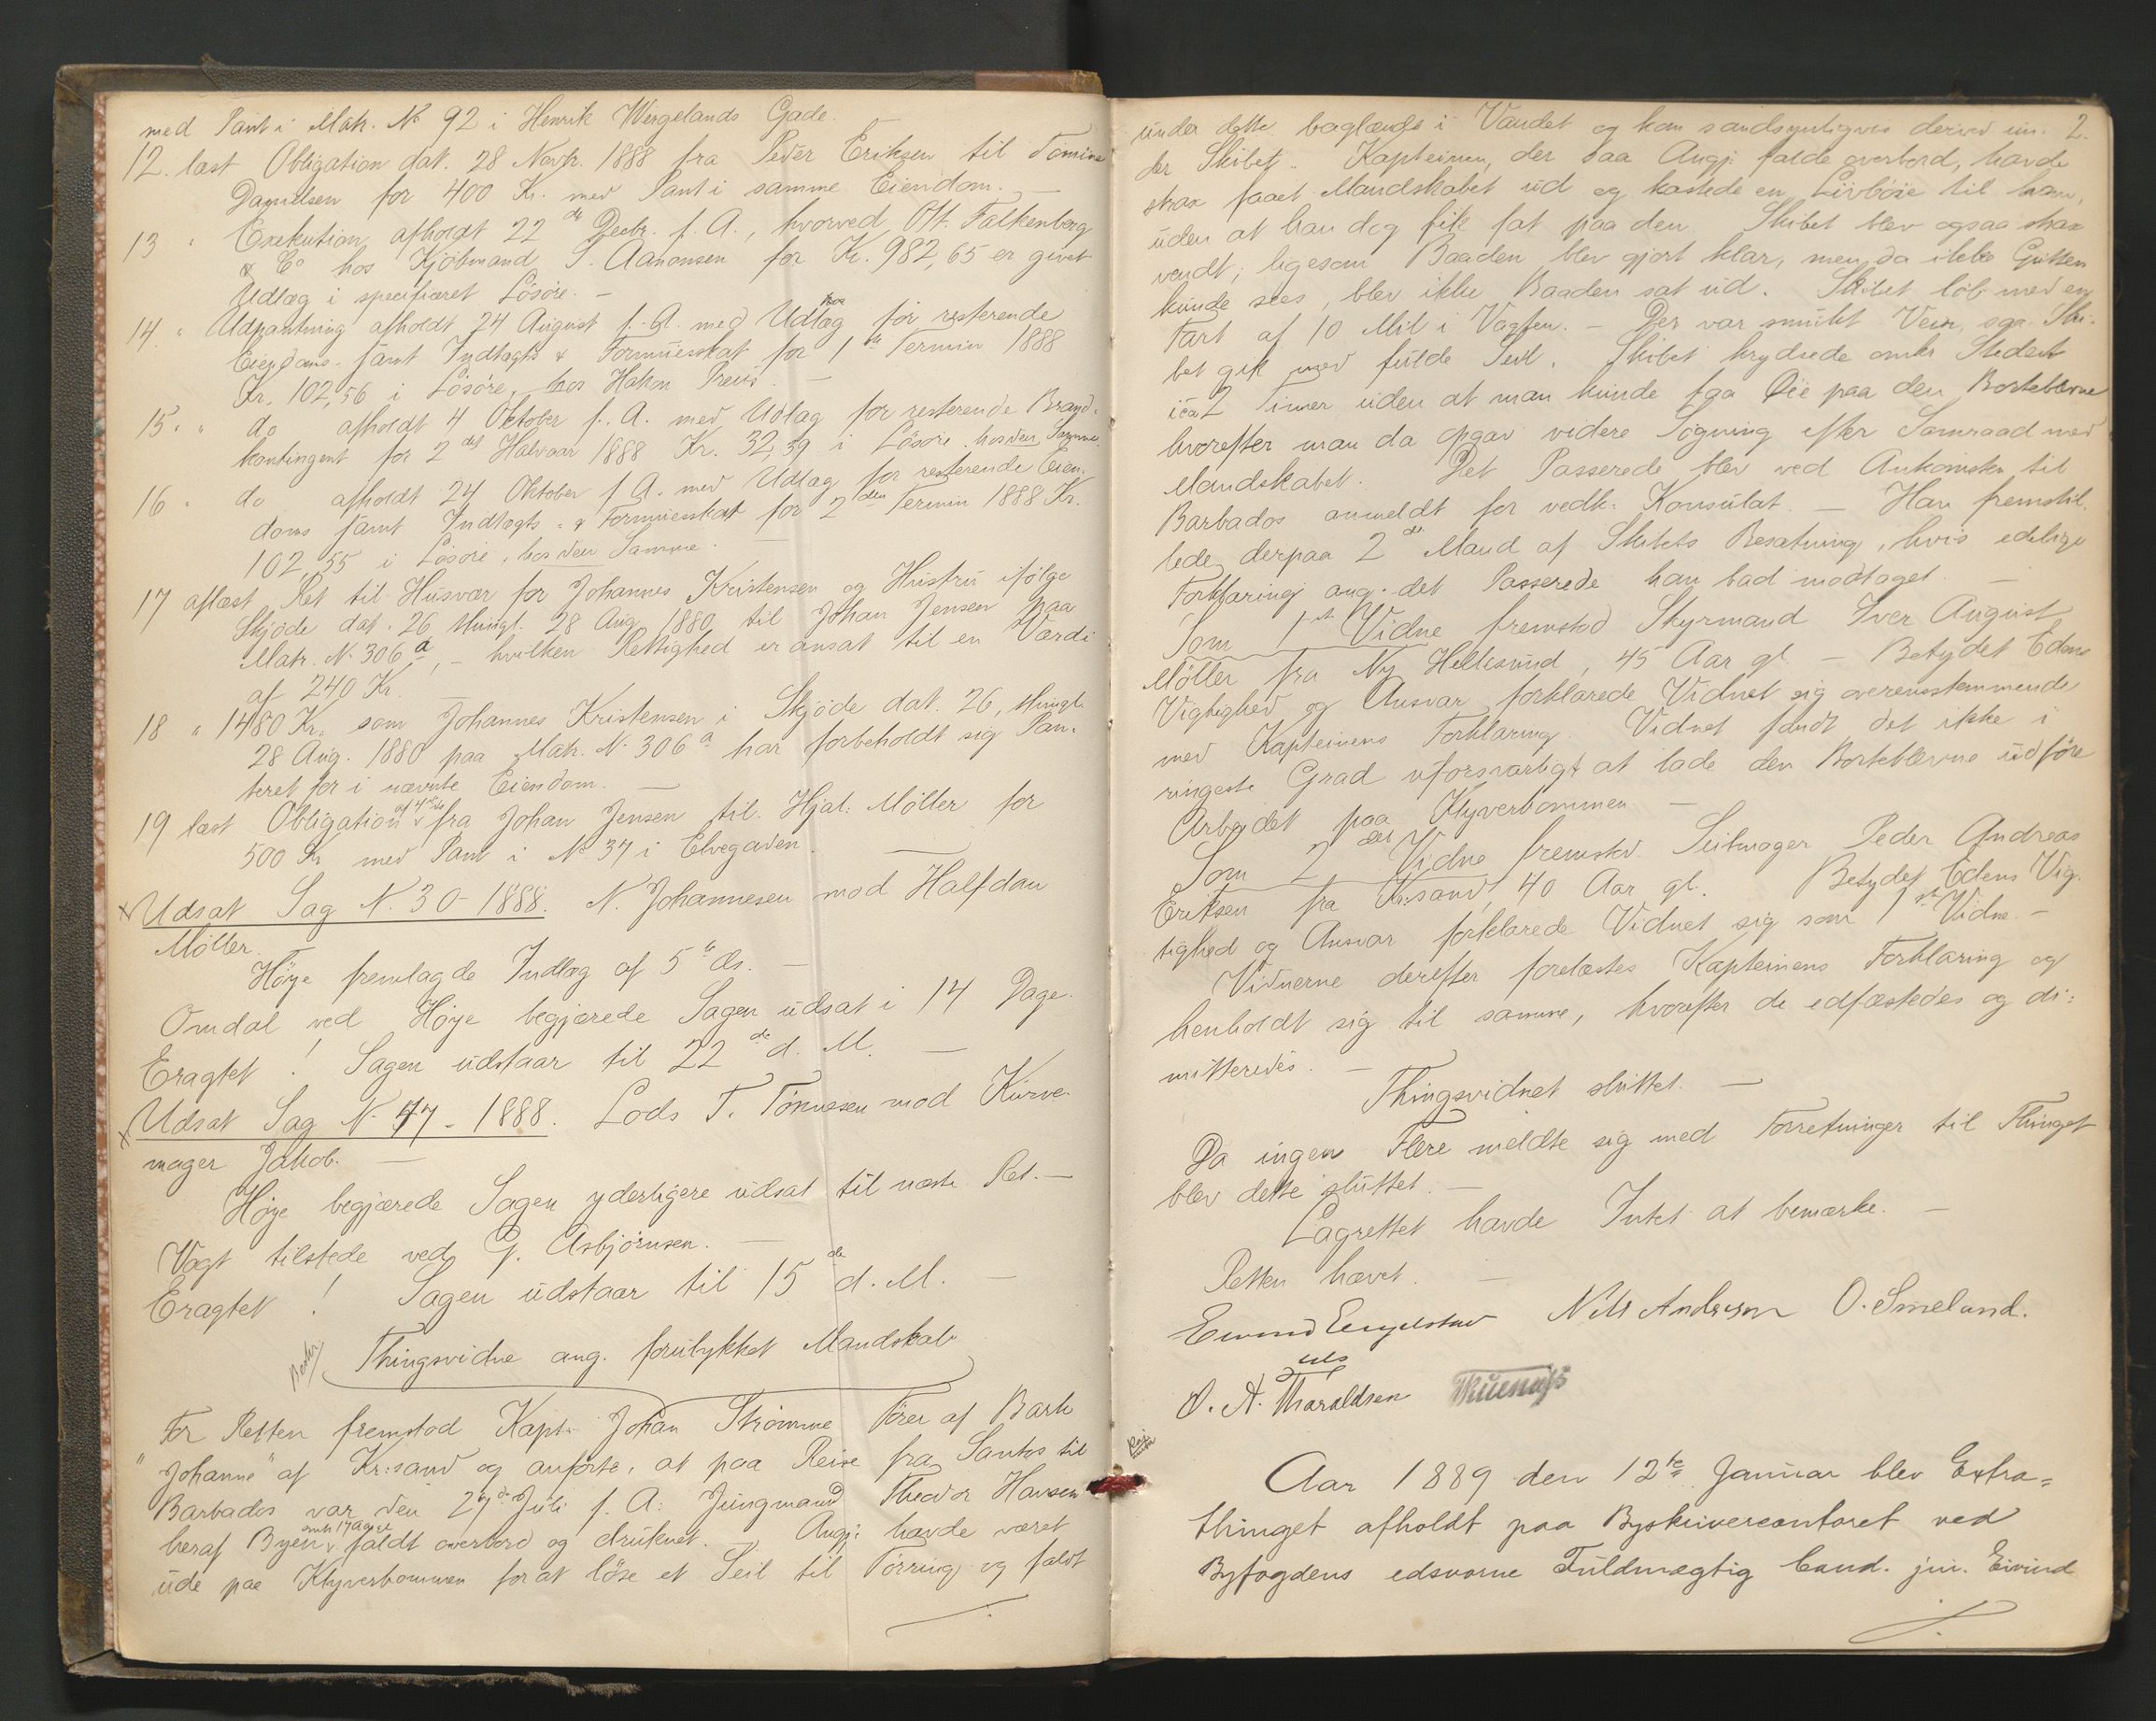 med Pant i Matr. No 92 i Henrik Wergelands Gade.
12. læst Obligation dat. 28 Novbr. 1888 fra Peder Eriksen til Tomine
Danielsen for 400 Kr. med Pant i samme Eiendom. —
13 " Exekution afholdt 22de Decbr. f. A., hvorved Ott. Falkenberg
& Co hos Kjöbmand S. Aanonsen for Kr. 982,65 er givet
Udlæg i specificeret Lösöre. —
14. " Udpantning afholdt 24 August f. A. med Udlæg for resterende
Eiendoms- samt Indtægts & Formuesskat for 1ste Termin 1888
Kr. 102,56 i Lösöre, hos Hakon Preus. —
15. " do afholdt 4 Oktober f. A. med Udlæg for resterende Brand-
kontingent for 2det Halvaar 1888 Kr. 32,39 i Lösöre hos den Samme.
16 " do afholdt 24 Oktober f A. med Udlæg for resterende Eien-
doms samt Indtægts- & Formuesskat for 2den Termin 1888 Kr.
102,55 i Lösöre, hos den Samme. —
17 aflæst Ret til Husvær for Johannes Kristensen og Hustru ifölge
Skjöde dat. 26 thingl. 28 Aug 1880 til Johan Jensen paa
Matr. No 306a, — hvilken Rettighed er ansat til en Værdi
af 240 Kr. —
18 " 1480 Kr. som Johannes Kristensen i Skjöde dat. 26, thingl.
28 Aug. 1880 paa Matr. No 306a har forbeholdt sig Pan-
teret for i nævnte Eiendom. —
19 læst Obligation af 4de ds fra Johan Jensen til Hjal. Möller for
500 Kr med Pant i No 37 i Elvegaden. —
Udsat Sag N. 30 - 1888. N. Johannesen mod Halfdan
Möller.
Höye fremlagde Indlæg af 5te ds. —
Omdal ved Höye begjærede Sagen udsat i 14 Dage.
Eragtet! Sagen udstaar til 22de d. M. —
Udsat Sag N. 47 - 1888. Lods T. Tönnesen mod Kurve-
mager Jakob. —
Höye begjærede Sagen yderligere udsat til næste Ret. —
Vogt tilstede ved G. Asbjörnsen. —
Eragtet! Sagen udstaar til 15de d. M. —
Thingsvidne ang. forulykket Mandskab
For Retten fremstod Kapt. Johan Strömme Förer af Bark
"Johanne" af Kr.sand og anförte, at paa Reise fra Santos til
Barbados var den 27de Juli f. A. Jungmand Theodor Hansen
heraf Byen omtr. 17 Aar gl. faldt overbord og druknet. — Angj. havde været
ude paa Klyverbommen for at löse et Seil til Törring og faldt
2.
under dette baglænds i Vandet og kom sandsynligvis derved un-
der Skibet. Kapteinen, der saa Angj. falde overbord, havde
strax faaet Mandskabet ud og kastede en Livböie til ham,
uden at han dog fik fat paa den. Skibet blev ogsaa strax
vendt, ligesom Baaden blev gjort klar, men da ikke Gutten
kunde sees, blev ikke Baaden sat ud. Skibet löb med en
Fart af 10 Mil i Vagten. — Der var smukt Veir, saa Ski-
bet gik med fulde Seil. Skibet krydsede omkr Stedet
i ca 2 Timer uden at man kunde faa Öie paa den Bortblevne
hvorefter man da opgav videre Sögning efter Samraad med
Mandskabet. Det Passerede blev ved Ankomsten til
Barbados anmeldt for vedk. Konsulat. — Han fremstil-
lede derpaa 2de Mand af Skibets Besætning, hvis edelige
Forklaring ang. det Passerede han bad modtaget. —
Som 1ste Vidne fremstod Styrmand Iver August
Möller fra Ny Hellesund, 45 Aar gl. — Betydet Edens
Vigtighed og Ansvar forklarede Vidnet sig overensstemmende
med Kapteinens Forklaring. Vidnet fandt det ikke i
ringeste Grad uforsvarligt at lade den Bortblevne udföre
Arbejdet paa Klyverbommen —
Som 2det Vidne fremstod Seilmager Peder Andreas
Eriksen fra Kr.sand, 40 Aar gl. Betydet Edens Vig-
tighed og Ansvar forklarede Vidnet sig som 1ste Vidne. —
Vidnerne derefter forelæstes Kapteinens Forklaring og
henholdt sig til samme, hvorefter de edfæstedes og di-
mitteredes. —
Thingsvidnet sluttet. —
Da ingen Flere meldte sig med Forretninger til Thinget
blev dette sluttet. —
Lagrettet havde Intet at bemærke. —
Retten hævet. —
Eivind Engelstad Nils Andersen O. Smelund.
O. A. Tharaldsen
Aar 1889 den 12te Januar blev Extra-
thinget afholdt paa Byskrivercontoret ved
Byfogdens edsvorne Fuldmægtig Cand. jur. Eivind